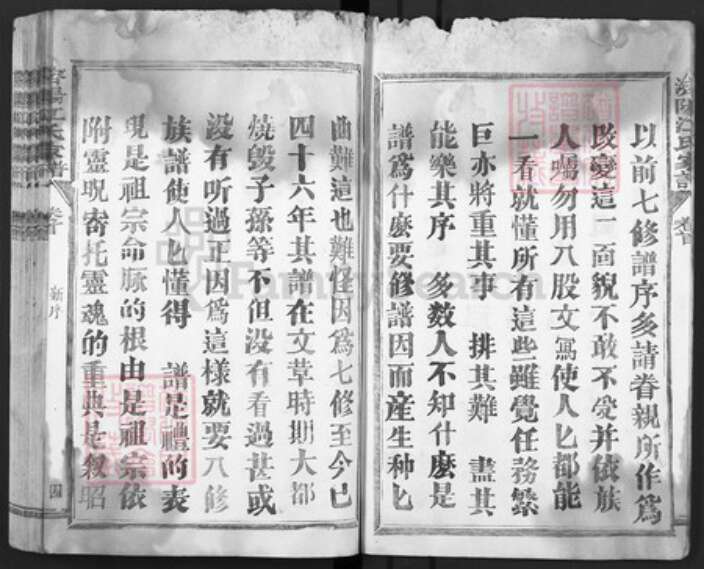 以前七修譜序多請眷親所作爲
改變這一面貌不敢不受并依族
人囑勿用八股文寫使人匕都能
一看就懂所有這些雖覺任務繁
巨亦將重其事 排其難 盡其
能樂其序 多数人不知什麽是
譜爲什麽要修譜因而産生种匕
曲難這也難怪因爲七修至今已
四十六年其譜在文草時期大部
燒毁子孫等不但没有看過甚或
没有听過正因爲這樣就要八修
族譜使人匕懂得 譜是禮的表
現是祖宗命脉的根由是祖宗依
附靈呪寄托靈魂的重典是叙昭
卷首
新序
四
FamilySearch